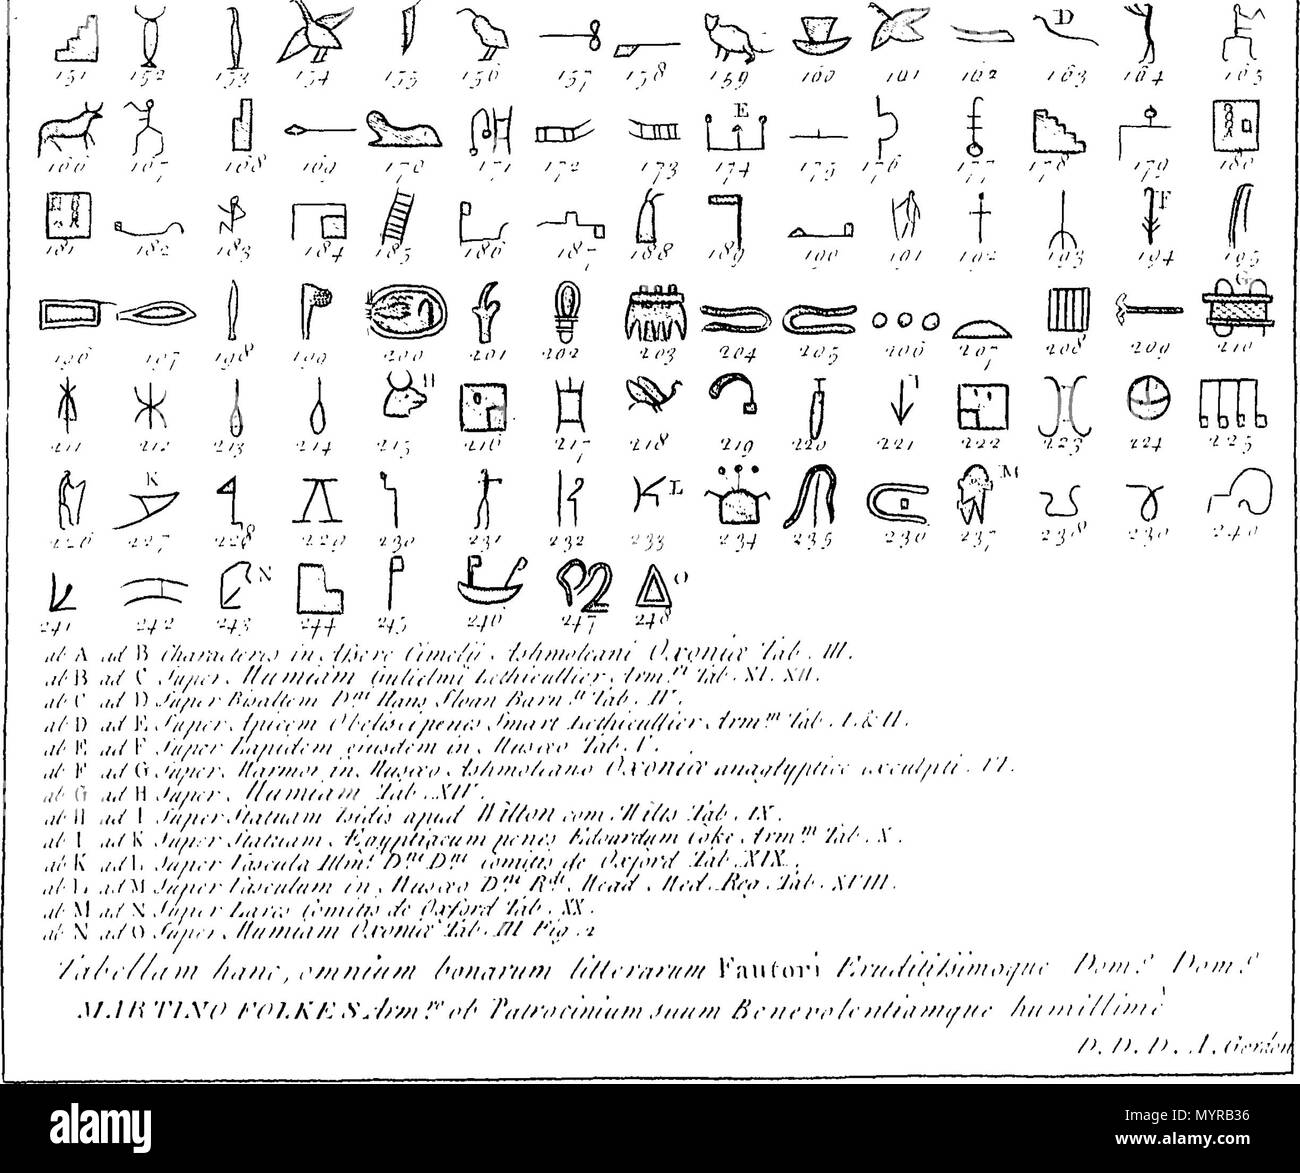 D
151 152 153 154 155 156 157 158 159 160 161 162 163 164 165
E
166 167 168 169 170 171 172 173 174 175 176 177 178 179 180
F
181 182 183 184 185 186 187 188 189 190 191 192 193 194 195
G
196 197 198 199 200 201 202 203 204 205 206 207 208 209 210
H I
211 212 213 214 215 216 217 218 219 220 221 222 223 224 225
K L M
226 227 228 229 230 231 232 233 234 235 236 237 238 239 240
N O
241 242 243 244 245 246 247 248
ab A ad B Characteres in Aßere Cimelij Ashmoleani Oxoniæ Tab. III.
ab B ad C Super Mumiam Gulielmi Lethieullier Arm.ri Tab. XI. XII.
ab C ad D Super Bisaltem Dni Hans Sloan Barn.ti Tab. IV.
ab D ad E Super Apicem Obelisci penes Smart Lethieullier Arm.m Tab. I. & II.
ab E ad F Super Lapidem ejusdem in Musæo Tab. V.
ab F ad G Super Marmor in Musæo Ashmoleano Oxoniæ anaglyptice exculpti. VI.
ab G ad H Super Mumiam Tab. XIV.
ab H ad I Super Statuam Isidis apud Wilton com Wilts Tab. IX.
ab I ad K Super Statuam Ægyptiacum penes Edoardum Coke Arm.m Tab. X.
ab K ad L Super Vascula Illmi Dni Dni Comitis de Oxford Tab. XIX.
ab L ad M Super Vasculum in Musæo Dni Rdi Mead Med. Reg. Tab. XVIII.
ab M ad N Super Lares Comitis de Oxford Tab. XX.
ab N ad O Super Mumiam Oxoniæ Tab. III Fig. 2
Tabellam hanc, omnium bonarum litterarum Fautori Eruditißimoque Dom.o Dom.o
MARTINO FOLKES Arm.ro ob Patrocinium suum Benevolentiamque humillimè
D. D. D. A. Gordon
alamy
Image ID: MYRB36
www.alamy.com